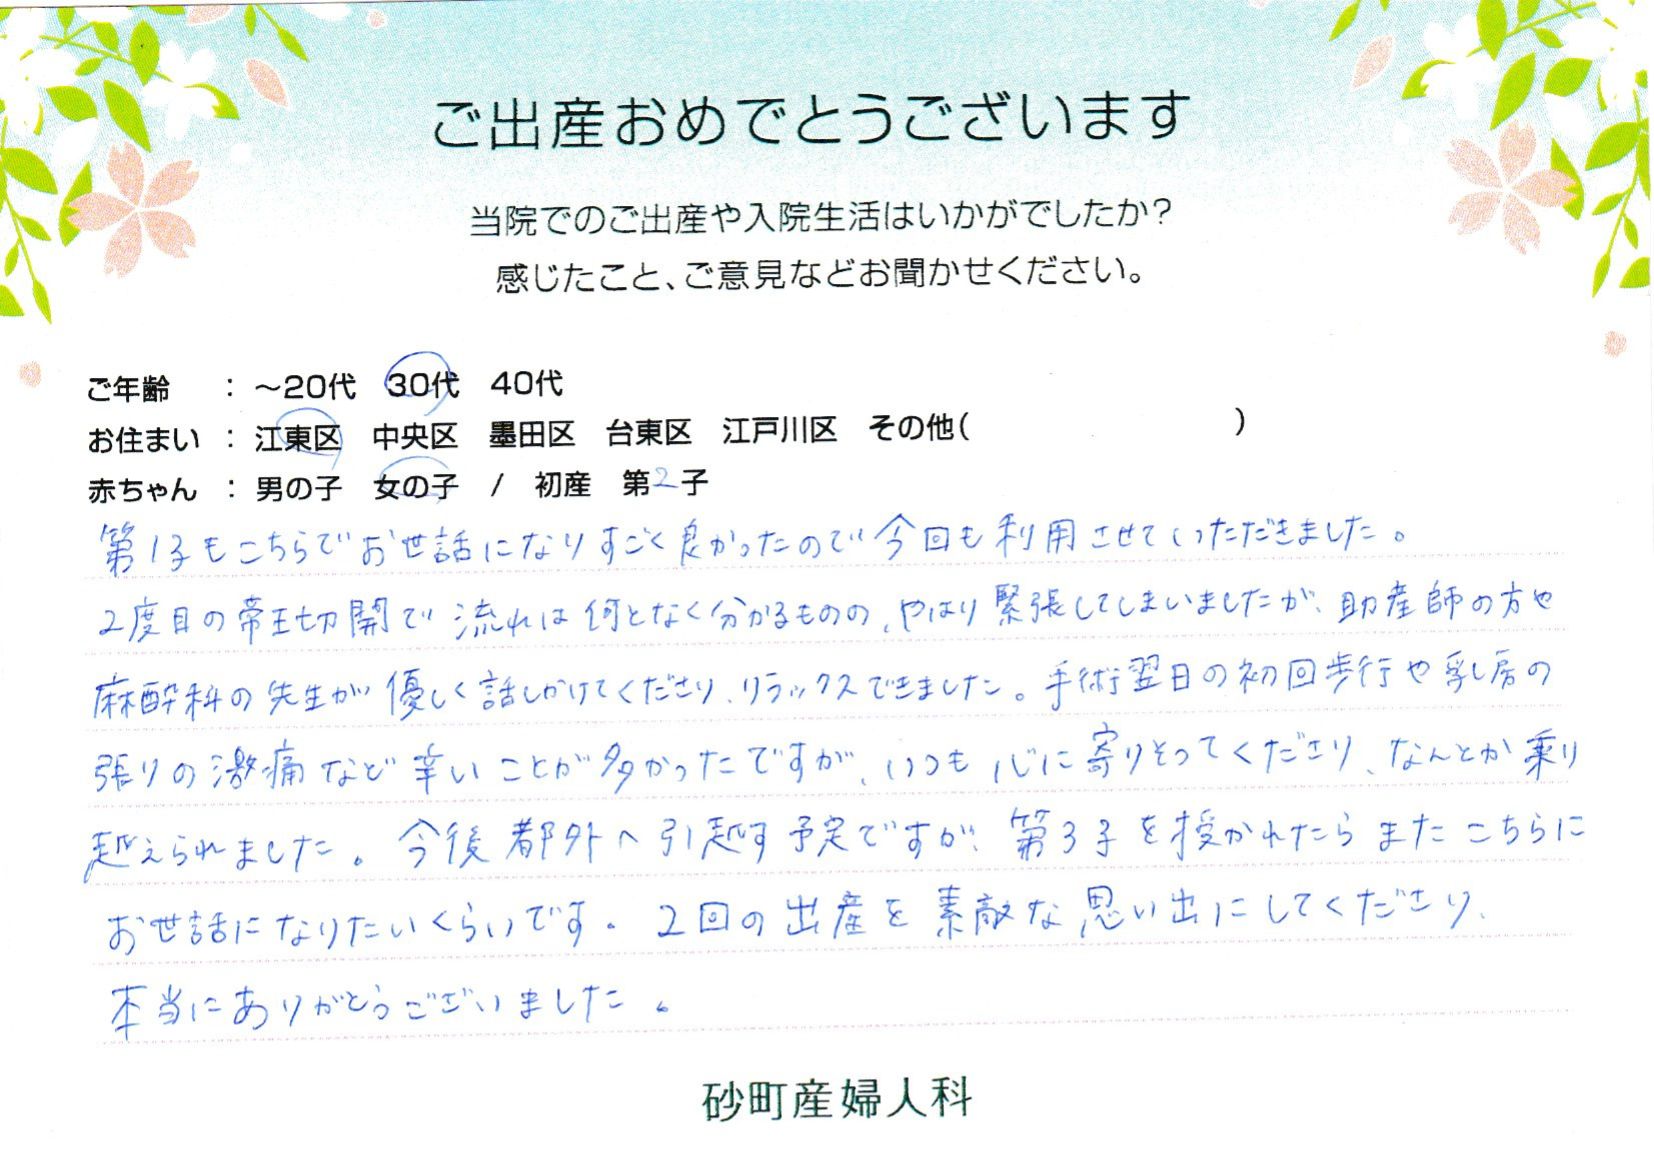 ご出産おめでとうございます
当院でのご出産や入院生活はいかがでしたか？
感じたこと、ご意見などお聞かせください。
ご年齢 ： ～20代 30代 40代
お住まい ： 江東区 中央区 墨田区 台東区 江戸川区 その他( )
赤ちゃん ： 男の子 女の子 / 初産 第2子
第1子もこちらでお世話になりすごく良かったので今回も利用させていただきました。
2度目の帝王切開で流れは何となく分かるものの、やはり緊張してしまいましたが、助産師の方や
麻酔科の先生が優しく話しかけてくださり、リラックスできました。手術翌日の初回歩行や乳房の
張りの激痛など辛いことが多かったですが、いつも心に寄りそってくださり、なんとか乗り
越えられました。今後都外へ引越す予定ですが、第3子を授かれたらまたこちらに
お世話になりたいくらいです。2回の出産を素敵な思い出にしてくださり、
本当にありがとうございました。
砂町産婦人科